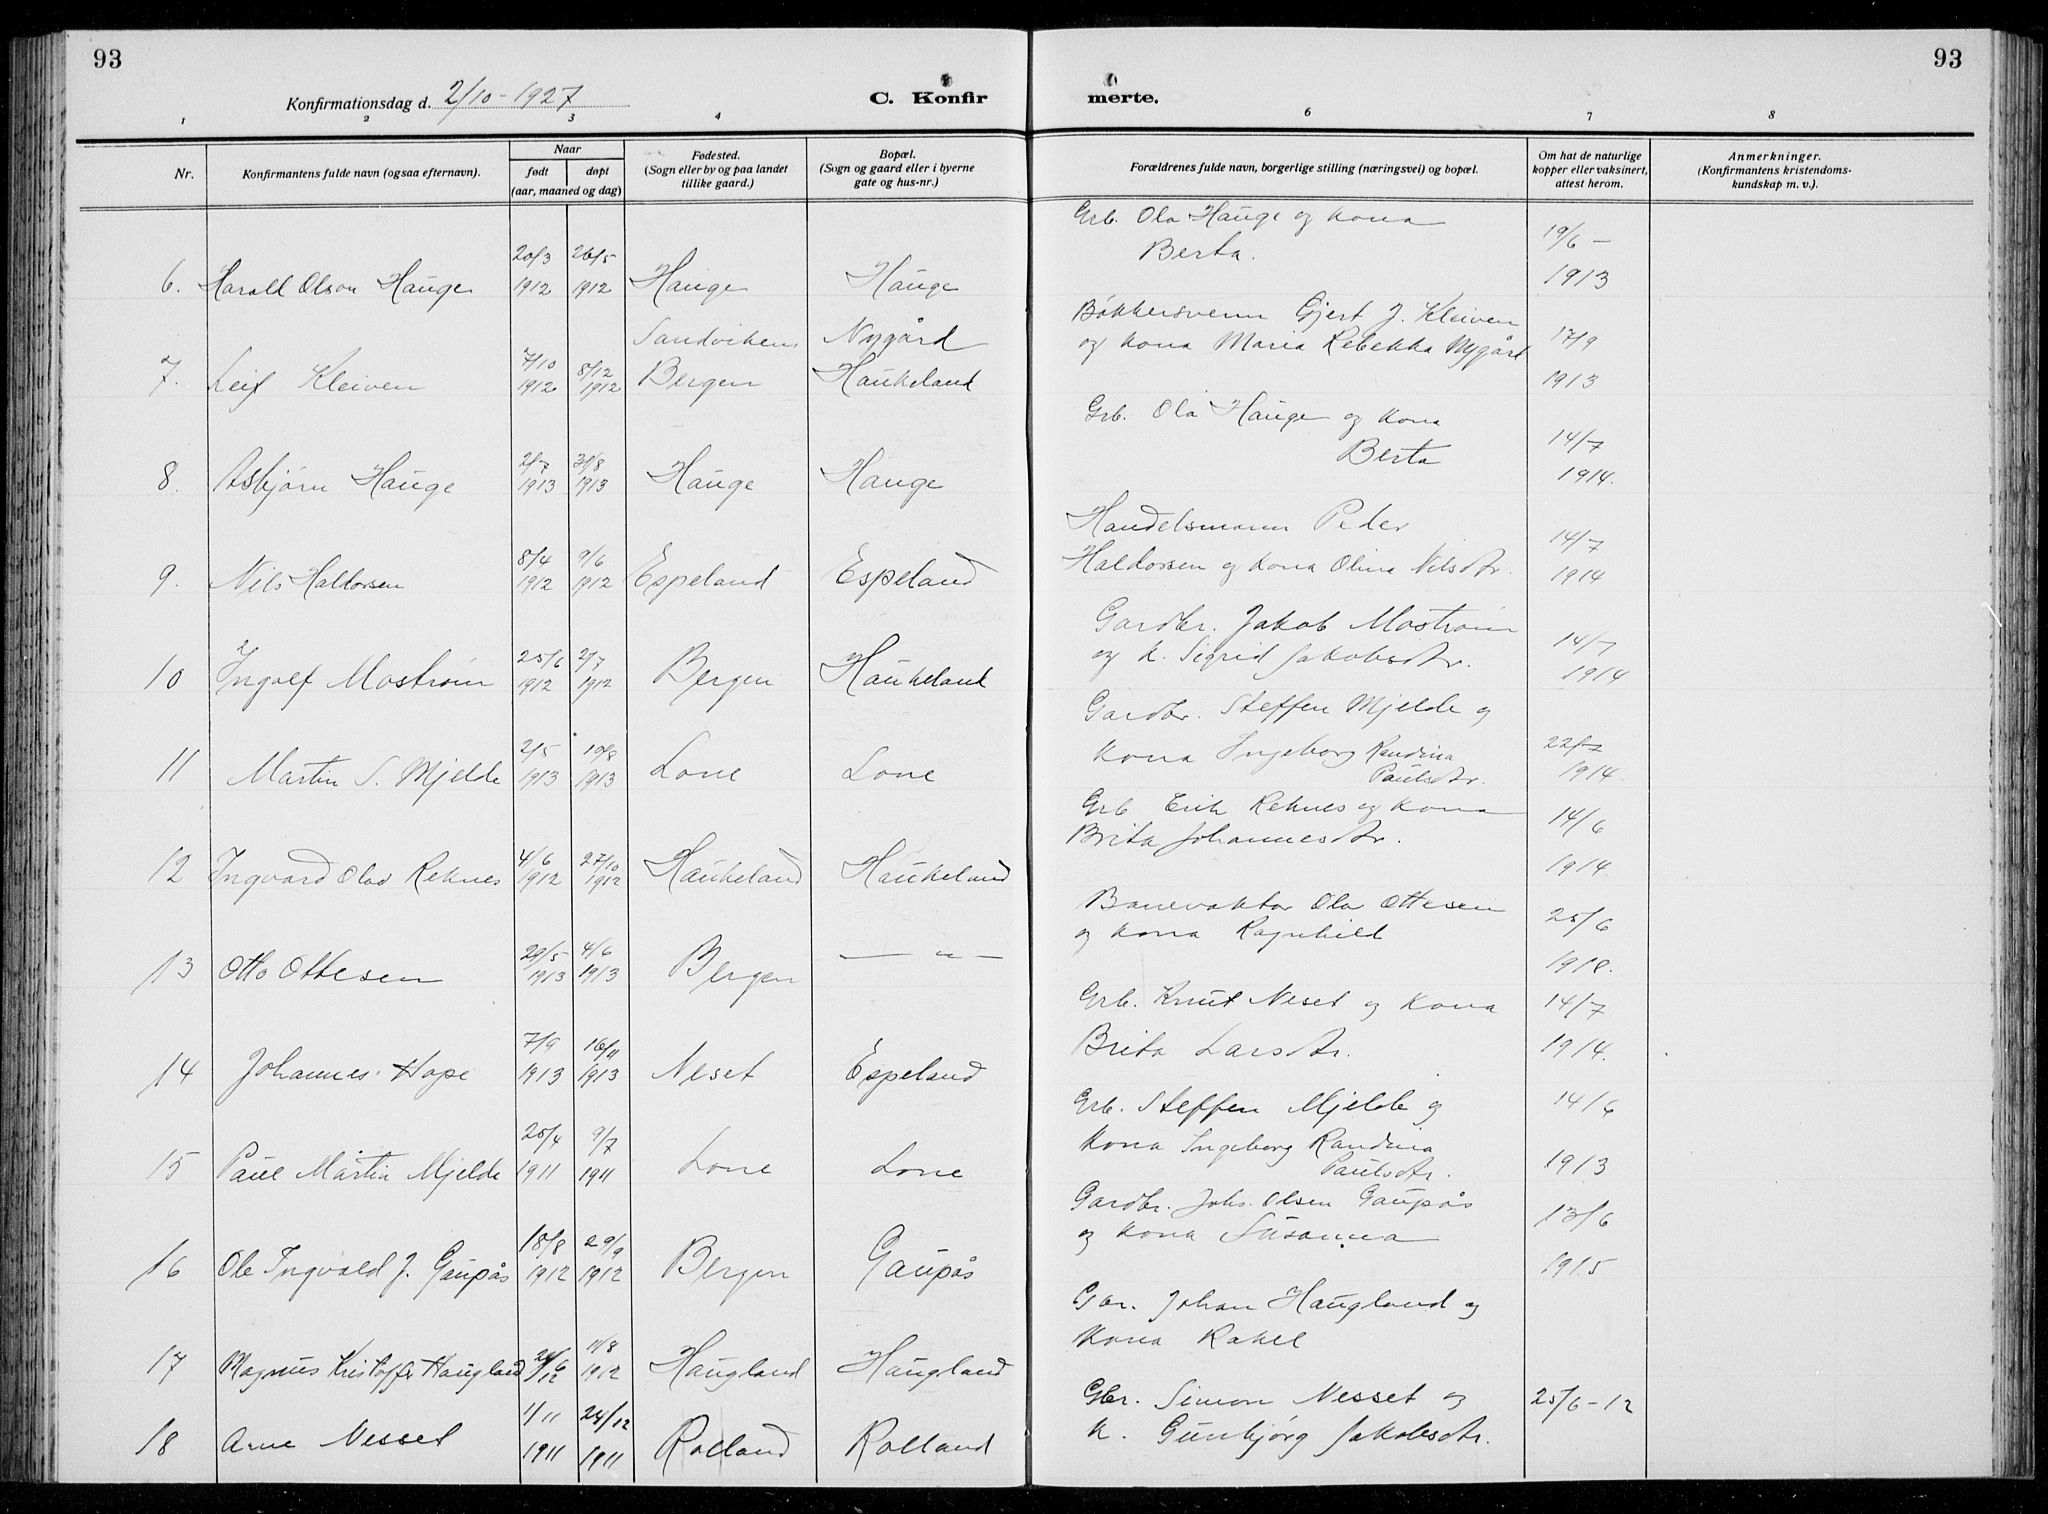 93
Konfirmationsdag d. 2/10 - 1927
C. Konfir
merte.
93
1 2 3 4 6 7 8
Nr.
Konfirmantens fulde navn (ogsaa efternavn).
Naar
født
døpt
(aar, maaned og dag)
Fødested.
(Sogn eller by og paa landet
tillike gaard.)
Bopæl.
(Sogn og gaard eller i byerne
gate og hus-nr.)
Forældrenes fulde navn, borgerlige stilling (næringsvei) og bopæl.
Om hat de naturlige
kopper eller vaksinert,
attest herom.
Anmerkninger.
(Konfirmantens kristendoms-
kundskap m. v.).
Grb. Ola Hauge og kona
20/3 26/5 Berta. 19/6 -
6. Harald Olson Hauge 1912 1912 Hauge Hauge 1913
Sandviken Nygård Bøkkersvenn Gjert J. Kleiven
7/10 8/12 og kona Maria Rebekka Nygård 17/9
7. Leif Kleiven 1912 1912 Bergen Haukeland 1913
Grb. Ola Hauge og kona
2/7 31/8 Berta 14/7
8. Asbjørn Hauge 1913 1913 Hauge Hauge 1914.
Handelsmann Peder
8/4 9/6 14/7
9. Nils Haldorsen 1912 1912 Espeland Espeland Haldorsen og kona Olina Nilsdtr. 1914
Gardbr. Jakob Mostrøm
25/6 2/7 og k. Sigrid Jakobsdtr. 14/7
10 Ingolf Mostrøm 1912 1912 Bergen Haukeland 1914
Gardbr. Steffen Mjelde og
2/5 10/8 kona Ingeborg Randina 22/7
11 Martin S. Mjelde 1913 1913 Lone Lone Paulsdtr. 1914.
Grb. Erik Reknes og kona
4/6 27/10 Brita Johannesdtr. 14/6
12 Ingvard Olav Reknes 1912 1912 Haukeland Haukeland 1914.
Banevaktor Ola Ottesen
29/5 4/6 og kona Ragnhild 25/6
13 Otto Ottesen 1913 1913 Bergen — " — 1918.
Grb. Knut Neset og kona 14/7
7/9 16/11
14 Johannes Hope 1913 1913 Neset Espeland Brita Larsdtr. 1914.
Grb. Steffen Mjelde og 14/6
25/4 9/7 kona Ingeborg Randina
15 Paul Martin Mjelde 1911 1911 Lone Lone Paulsdtr. 1913
Gardbr. Johs. Olsen Gaupås
18/8 29/9 og kona Susanna 13/6
16 Ole Ingvald J. Gaupås 1912 1912 Bergen Gaupås 1915
Gbr. Johan Haugland og
11/8 kona Rakel
17 Magnus Kristoffer Haugland 1912 Haugland Haugland
1/11 24/12 Gbr. Simon Nesset og 25/6 - 12
18 Arne Nesset 1911 1911 Rolland Rolland k. Gunbjørg Jakobsdtr.